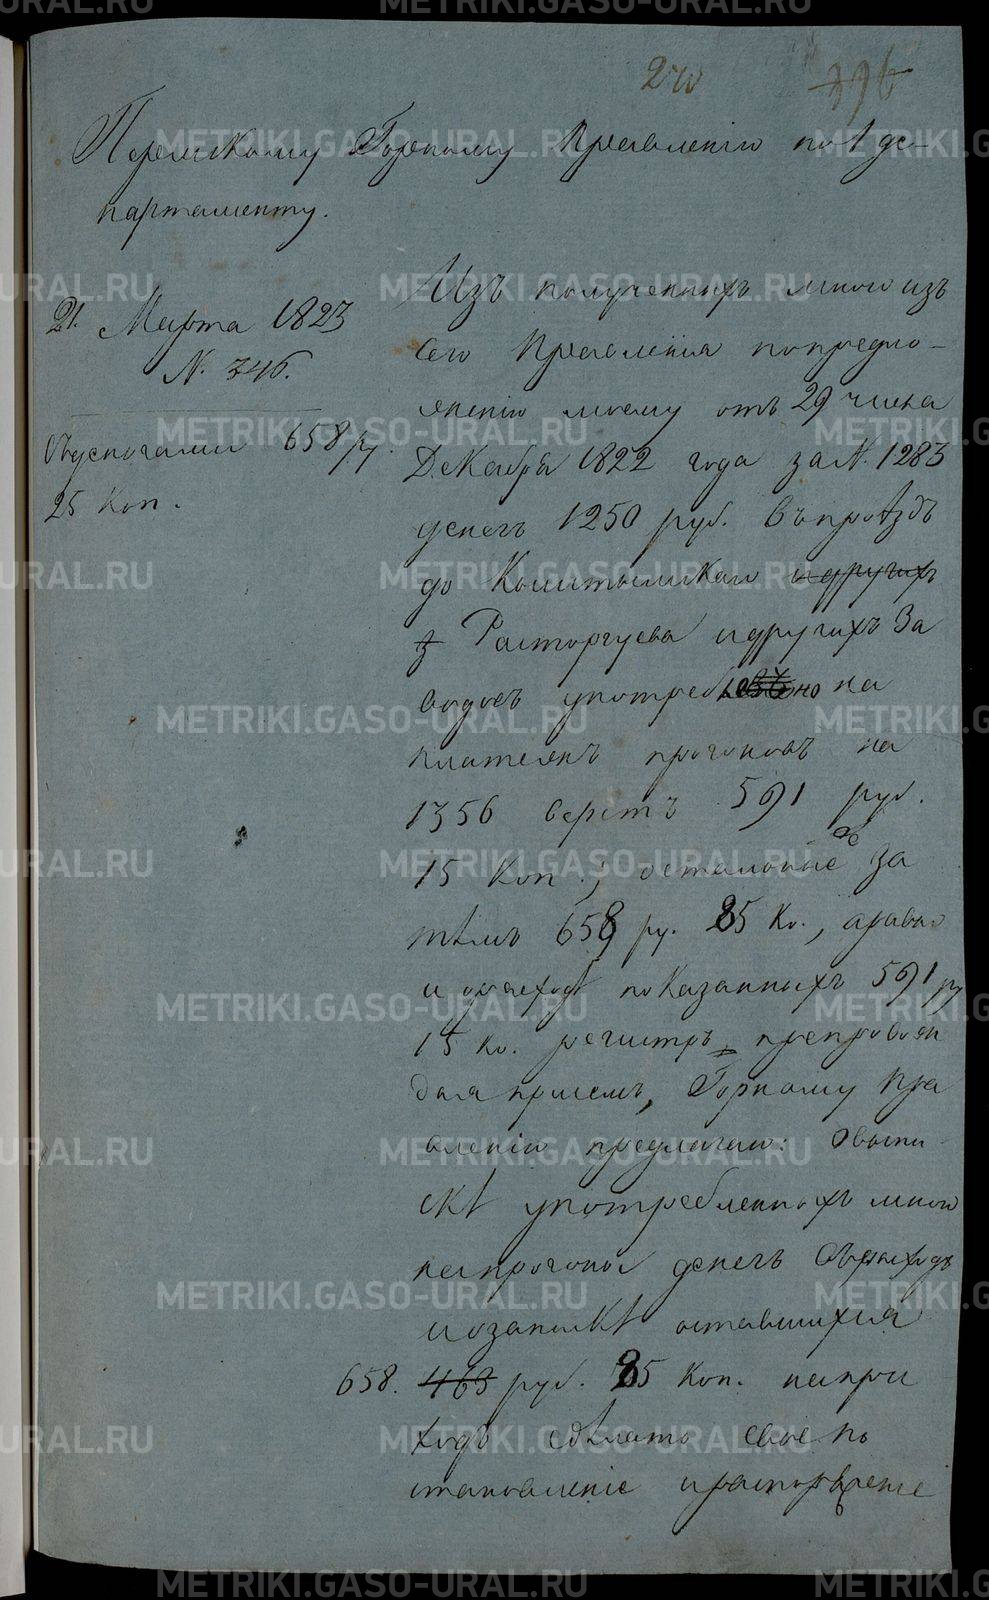 240
396
Пермскому Горному Правлению по 1 де-
партаменту.
21. Марта 1823
N. 346.
Съденьгами 658 ру.
25 коп.
Изъ полученныхъ мною изъ
сего Правления попредло-
жению моему отъ 29 числа
Декабря 1822 года за N. 1283
денегъ 1250 руб. въпроѣздъ
до Кыштымскаго и другихъ
Расторгуева и другихъ за
водовъ употреблено на
платежъ прогоновъ на
1356 верстъ 591 руб.
15 коп.; остальные за
тѣмъ 658 ру. 85 ко., а равно
и орасходѣ показанныхъ 591 ру
15 ко. регистръ, препровож
дая присемъ, Горному Пра
влению предлагаю: овыпи
скѣ употребленныхъ мною
напрогоны денегъ въ расходъ
и озапискѣ оставшихся
658. 463 руб. 85 коп. наприх
ходъ сдѣлать свое по
становление и распоряже
METRIKI.GASO-URAL.RU